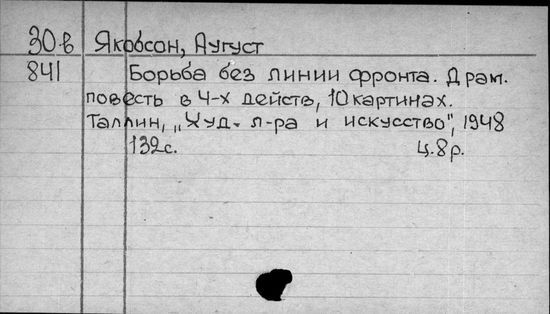 30-в Якобсон, Аугуст
841 Борьба без линии фронта. Драм.
повесть в 4-х действ, 10 картинах.
Таллин, „Худ. л-ра и искусство", 1948
132с. Ц.8р.